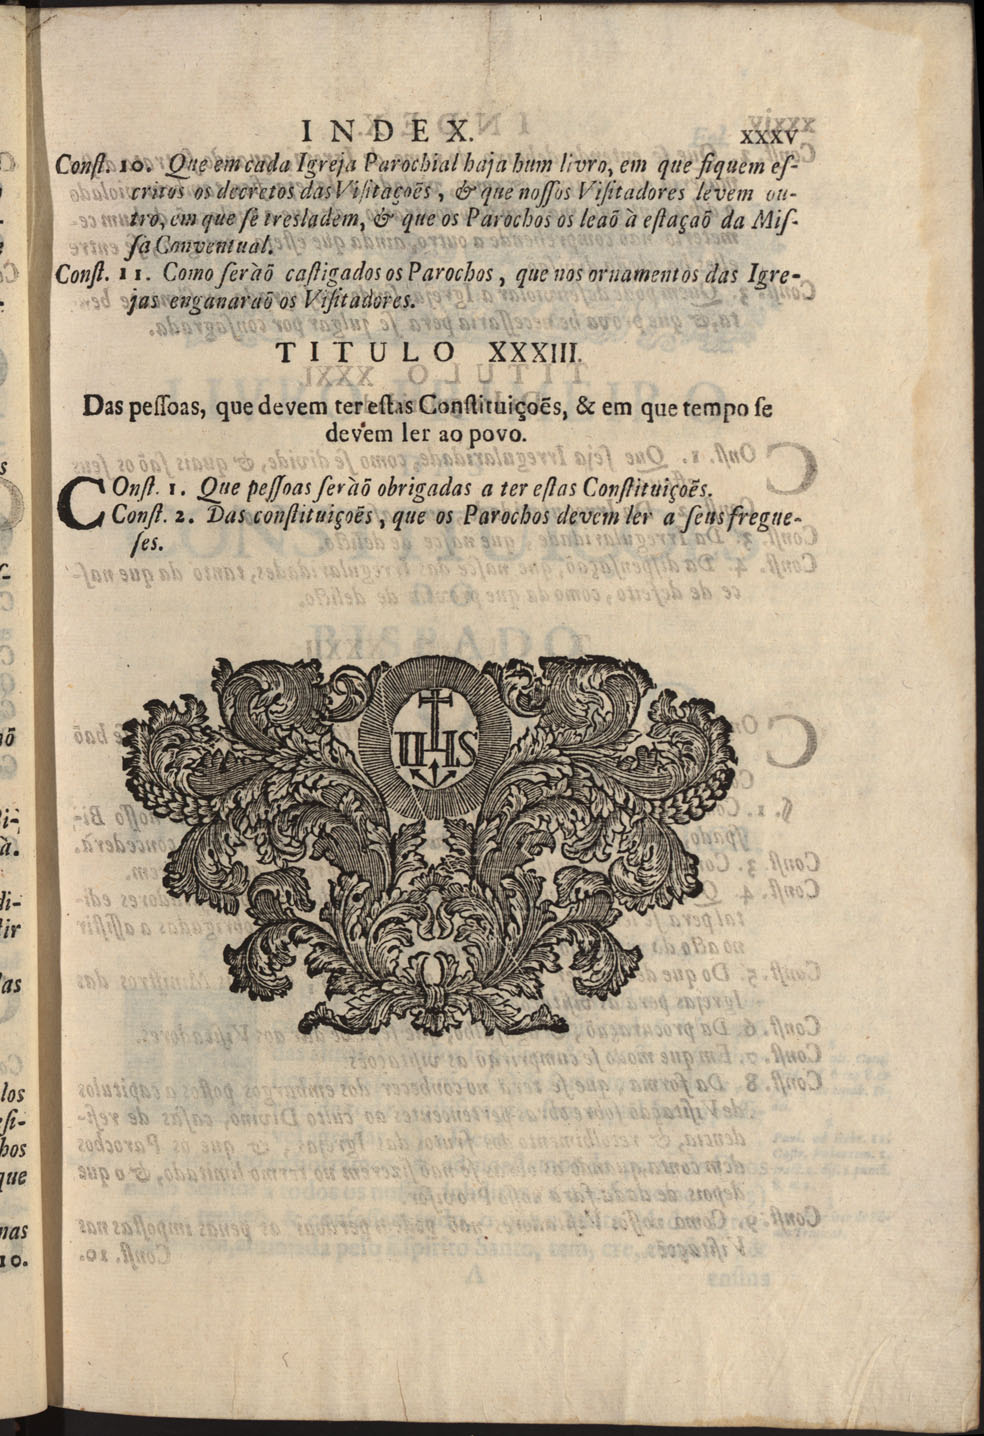 INDEX. XXXV
Conſt. 10. Que em cada Igreja Parochial haja hum livro, em que fiquem eſ-
critos os decretos das Viſitaçoẽs, & que noſſos Viſitadores levem ou-
tro, em que ſe tresladem, & que os Parochos os leaõ à eſtaçaõ da Miſ-
ſa Conventual.
Conſt. 11. Como ſeràõ caſtigados os Parochos, que nos ornamentos das Igre-
jas enganaraõ os Viſitadores.
TITULO XXXIII.
Das peſſoas, que devem ter eſtas Conſtituiçoẽs, & em que tempo ſe
devem ler ao povo.
COnſt. 1. Que peſſoas ſeràõ obrigadas a ter eſtas Conſtituiçoẽs.
Conſt. 2. Das conſtituiçoẽs, que os Parochos devem ler a ſeus fregue-
ſes.
IHS